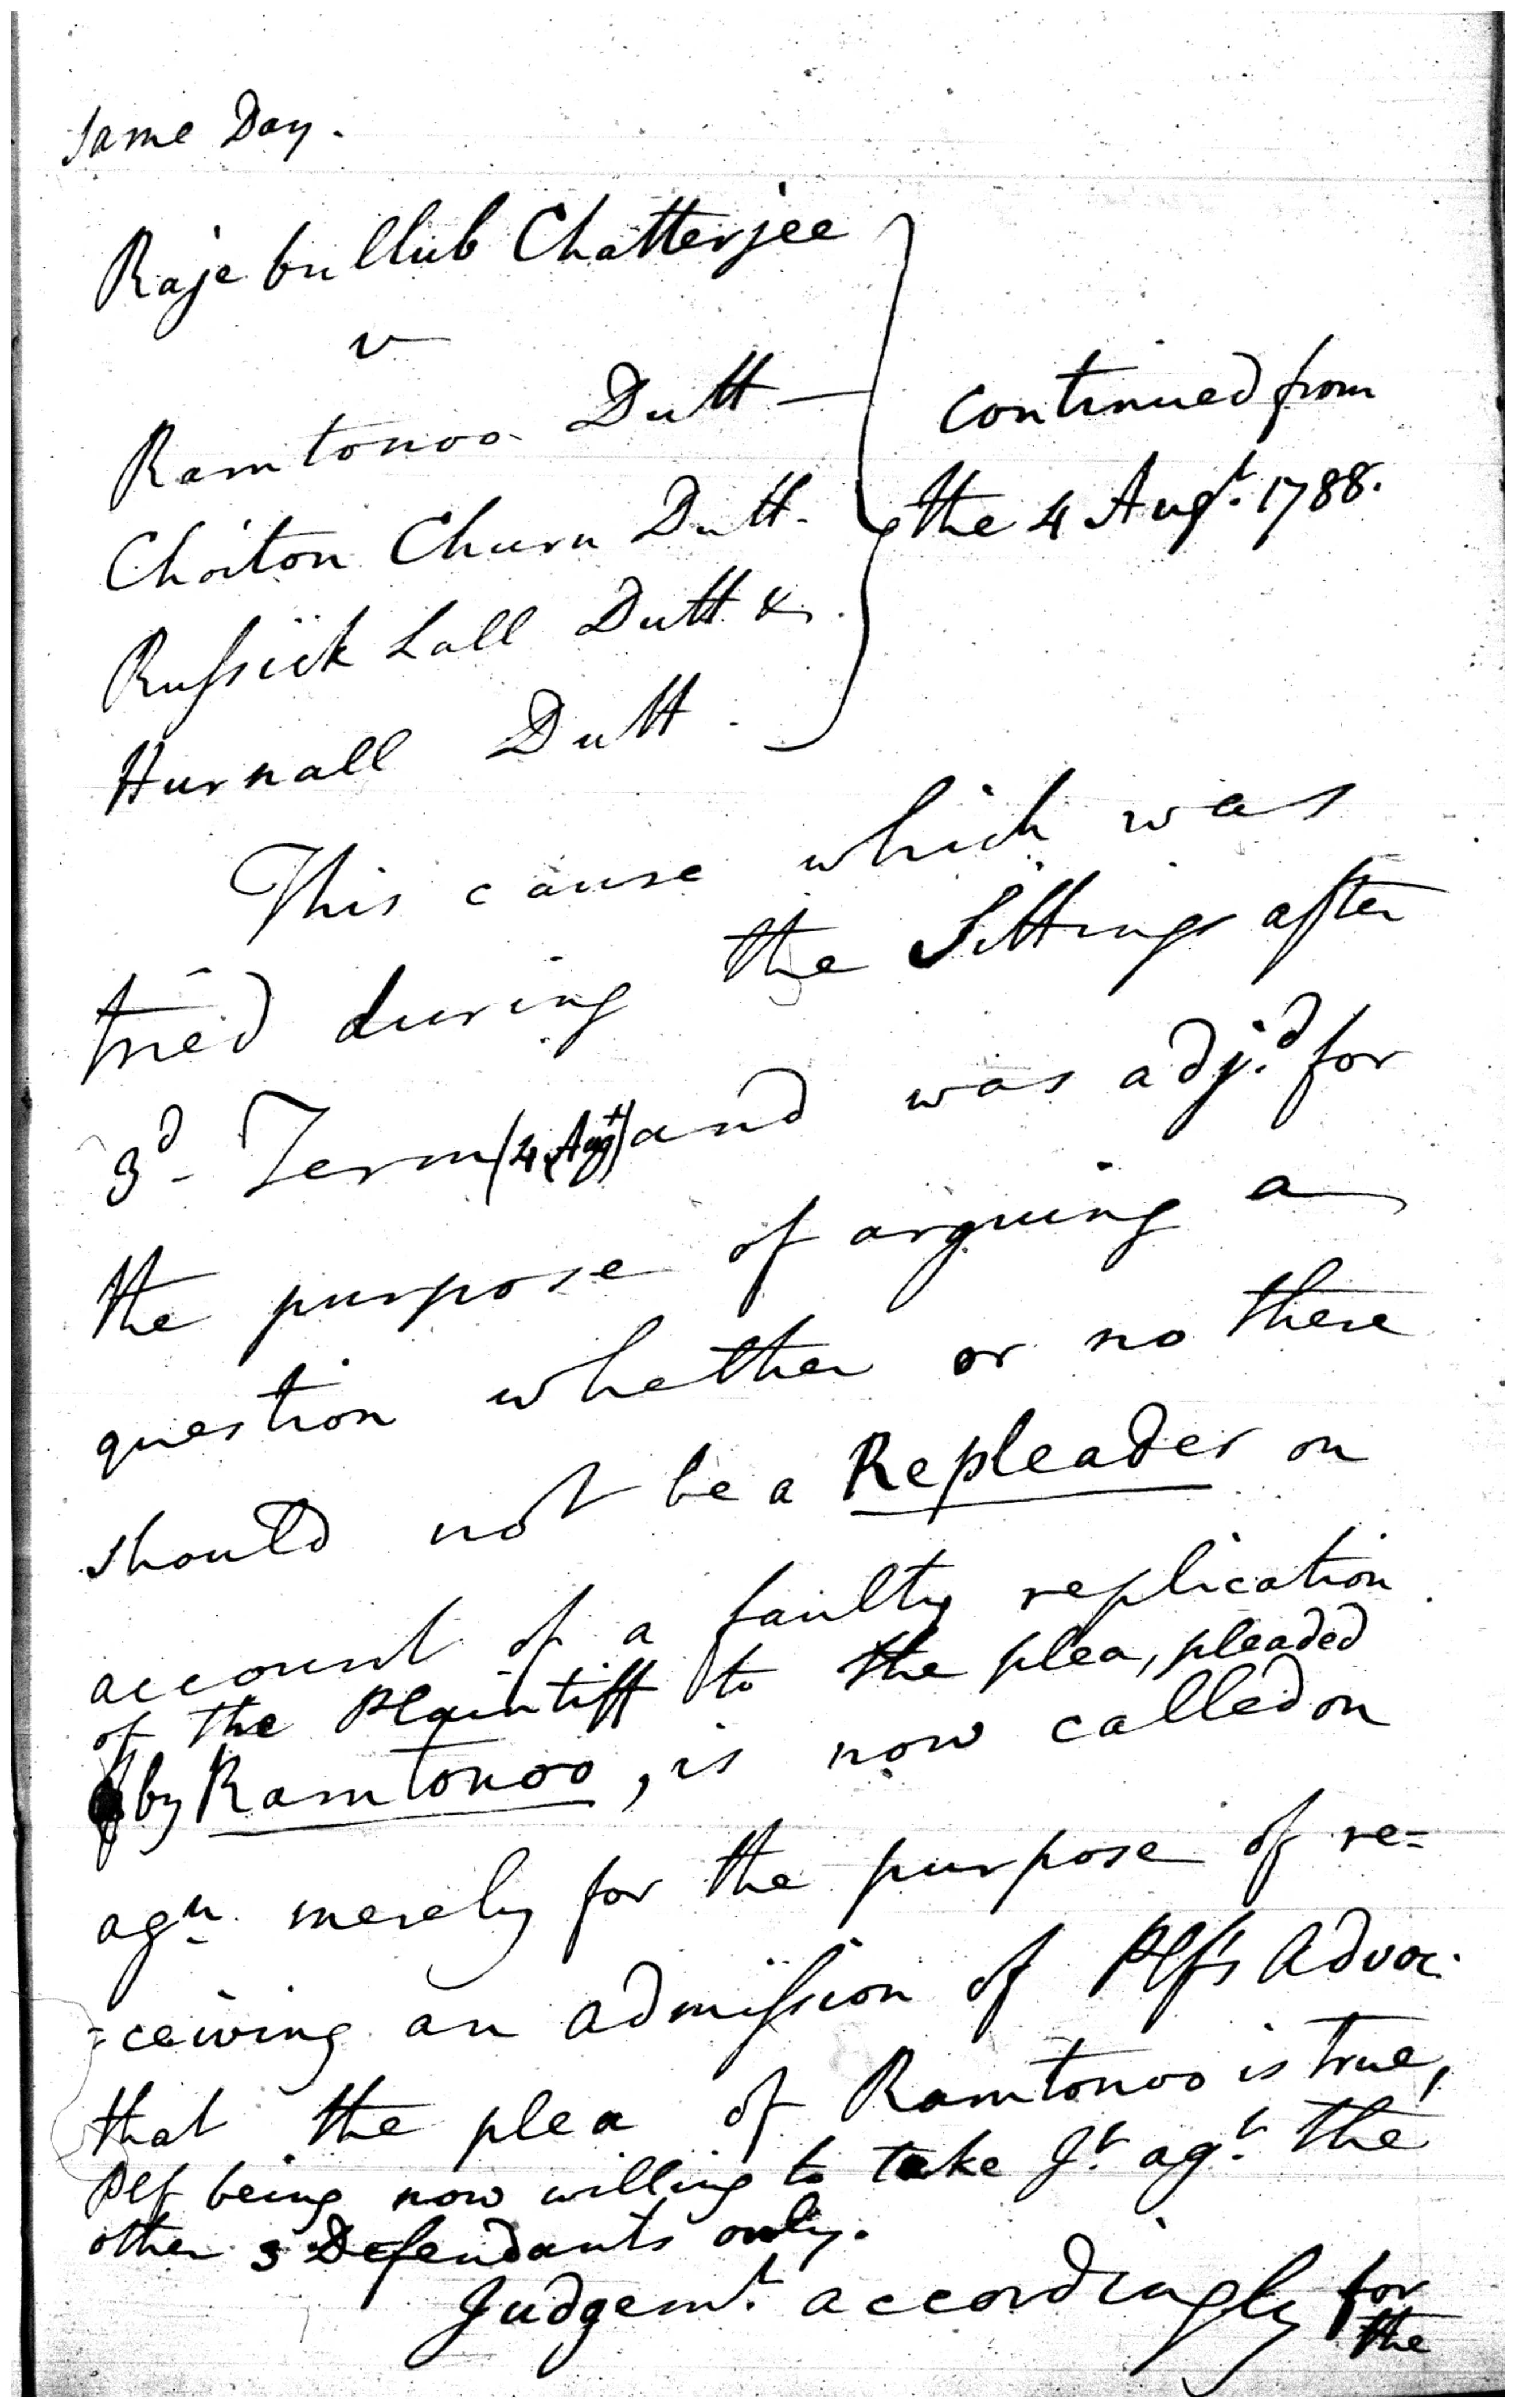 Same Day.
Rajebullub Chatterjee
v
Ramtonoo Dutt —
Choiton Churn Dutt.
Russick Lall Dutt &
Hurnall Dutt.
continued from
the 4 Augt. 1788.
This cause which was
tried during the Sittings after
3d Term (4 Augt) and was adj.d for
the purpose of arguing a
question whether or no there
should not be a Repleader on
account of a faulty replication
of the Plaintiff to the plea, pleaded
by Ramtonoo, is now called on
agn. merely for the purpose of re=
=ceiving an admission of Plf's Advoc.
that the plea of Ramtonoo is true,
Plf being now willing to take Jt. agt. the
other 3 Defendants only.
Judgemt. accordingly for
the